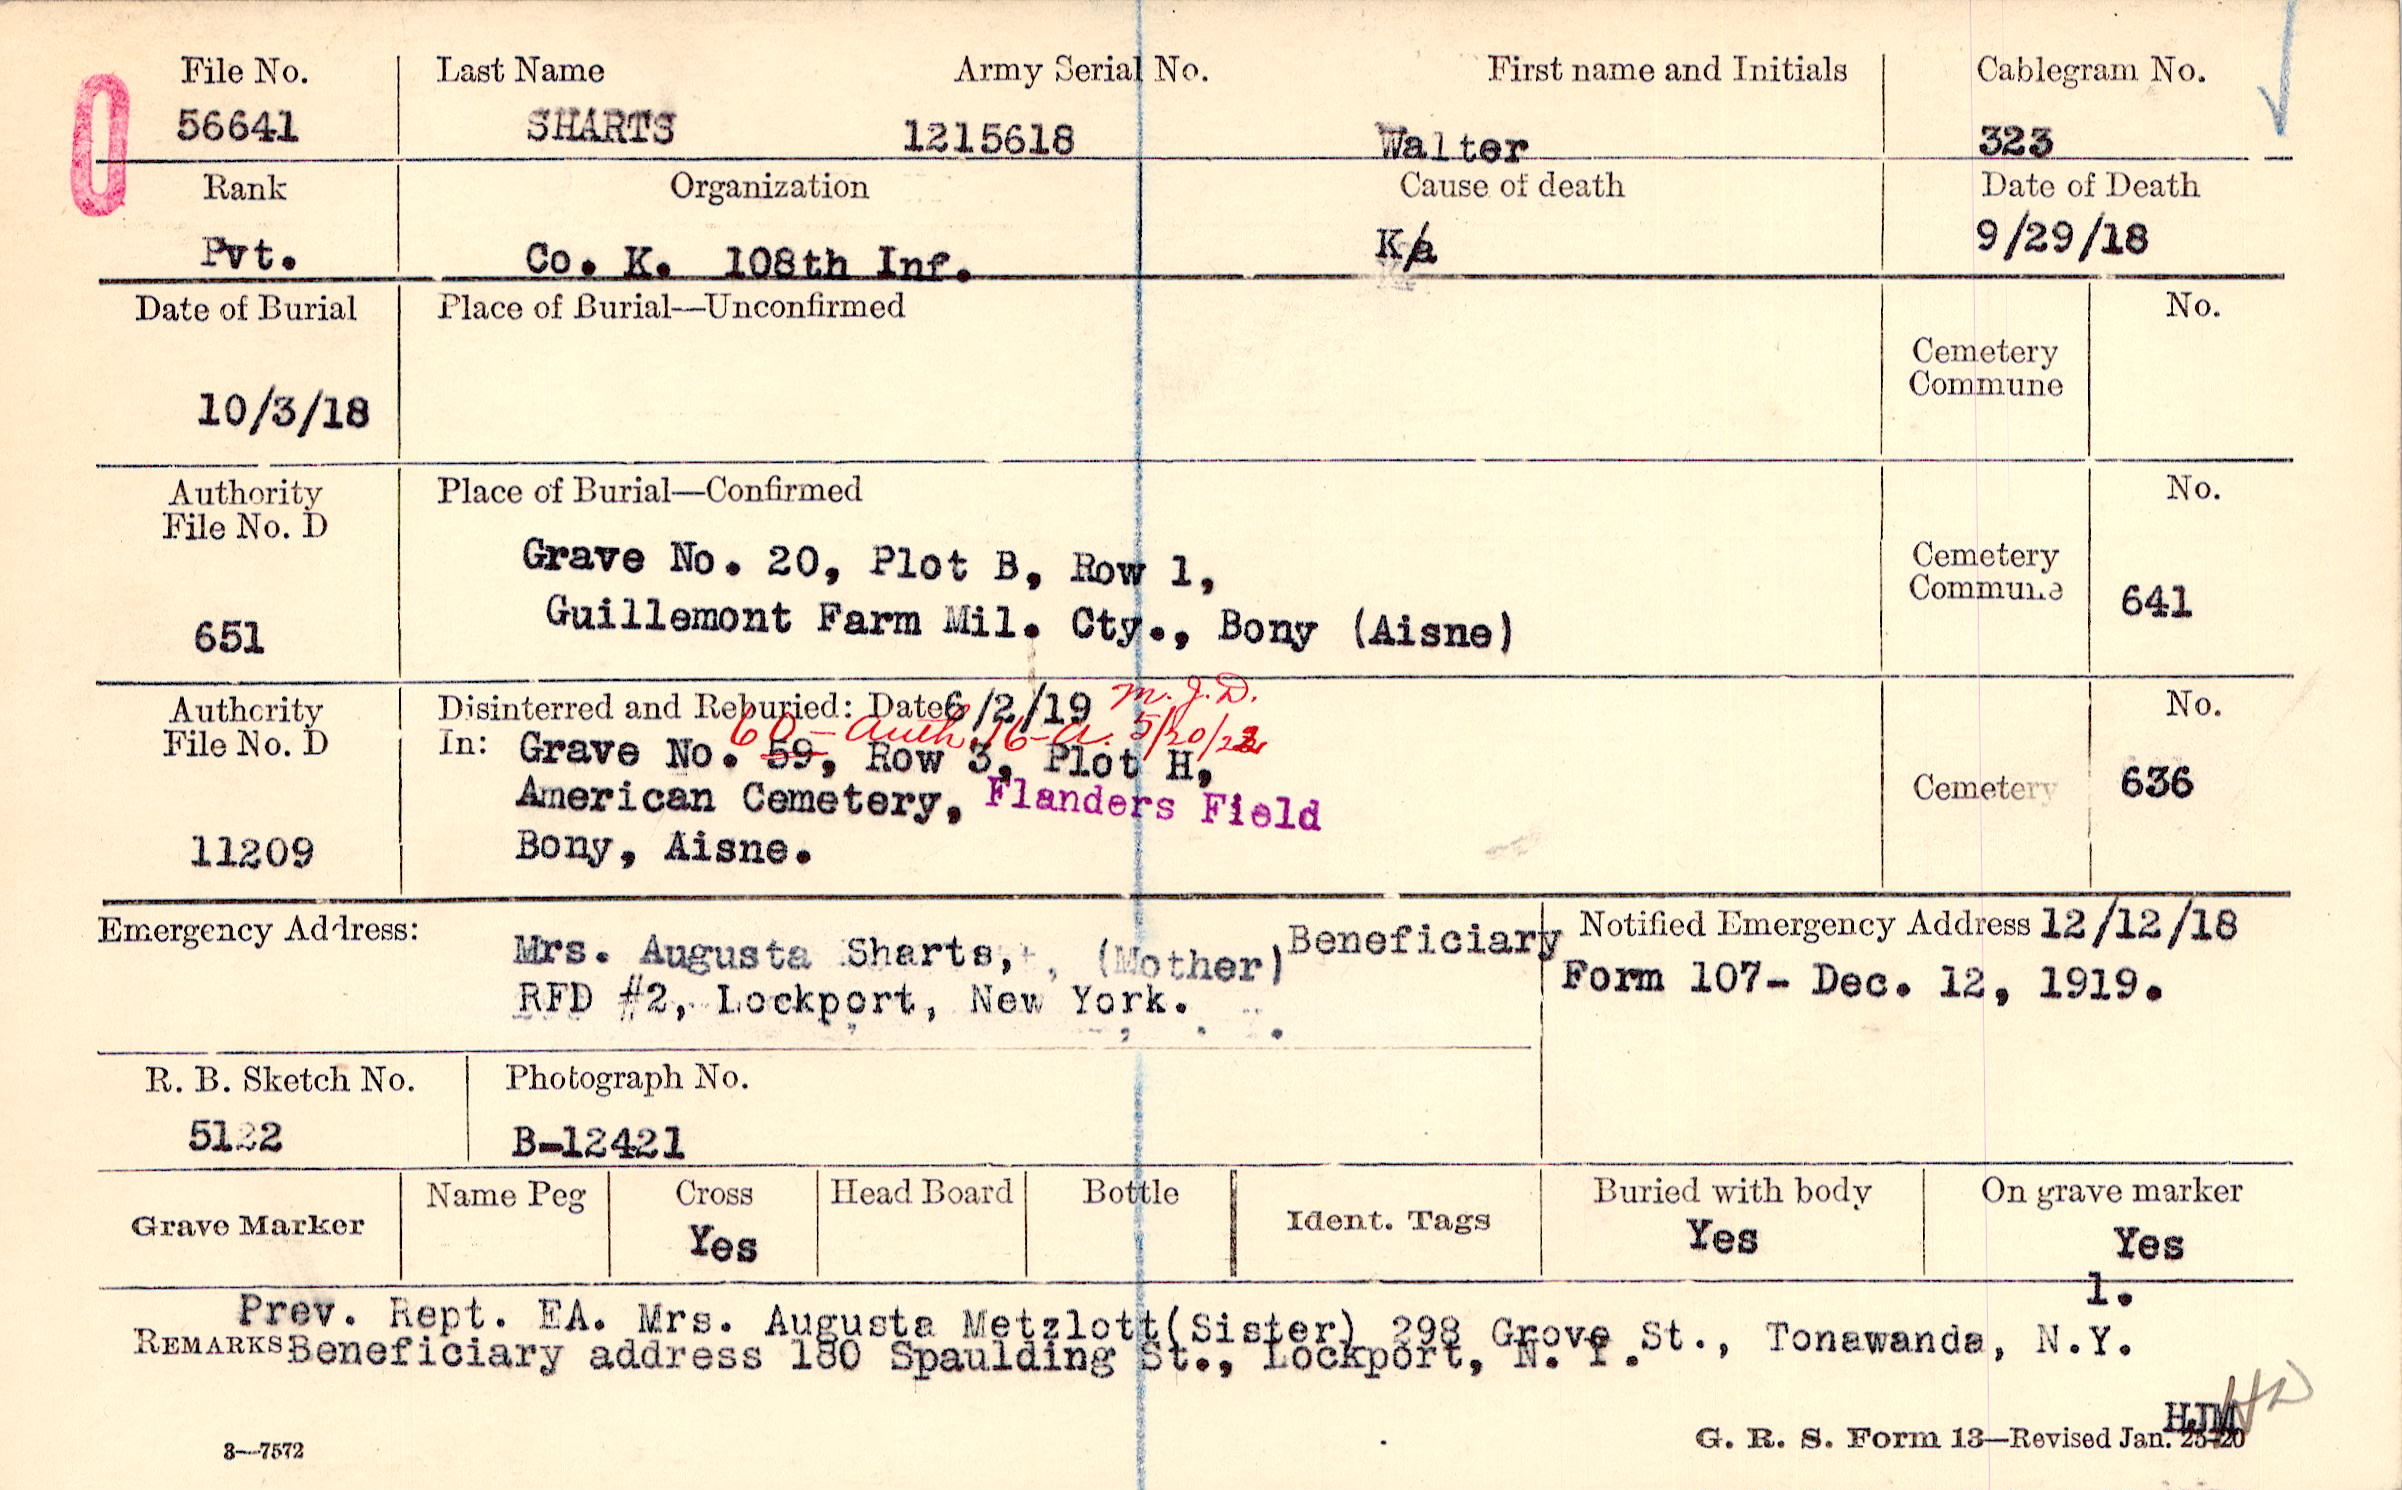 0
File No. Last Name Army Serial No. First name and Initials Cablegram No.
56641 SHARTS 1215618 Walter 323
Rank Organization Cause of death Date of Death
Pvt. Co. K. 108th Inf. K/a 9/29/18
Date of Burial Place of Burial—Unconfirmed No.
Cemetery
Commune
10/3/18
Authority Place of Burial—Confirmed No.
File No. D
Grave No. 20, Plot B, Row 1, Cemetery
Commune 641
Guillemont Farm Mil. Cty., Bony (Aisne)
651
Authority Disinterred and Reburied: Date 6/2/19 M. J. D. No.
60 - Auth. 16-a. 5/20/22
File No. D In: Grave No. 59, Row 3, Plot H,
American Cemetery, Flanders Field Cemetery 636
11209 Bony, Aisne.
Emergency Address: Notified Emergency Address 12/12/18
Mrs. Augusta Sharts, (Mother) Beneficiary
RFD #2, Lockport, New York. Form 107- Dec. 12, 1919.
R. B. Sketch No. Photograph No.
5122 B-12421
Grave Marker Name Peg Cross Head Board Bottle Ident. Tags Buried with body On grave marker
Yes Yes Yes
1.
Prev. Rept. EA. Mrs. Augusta Metzlott(Sister) 298 Grove St., Tonawanda, N.Y.
REMARKS Beneficiary address 180 Spaulding St., Lockport, N. Y.
HJM
3—7572 G. R. S. Form 13—Revised Jan. 23-20